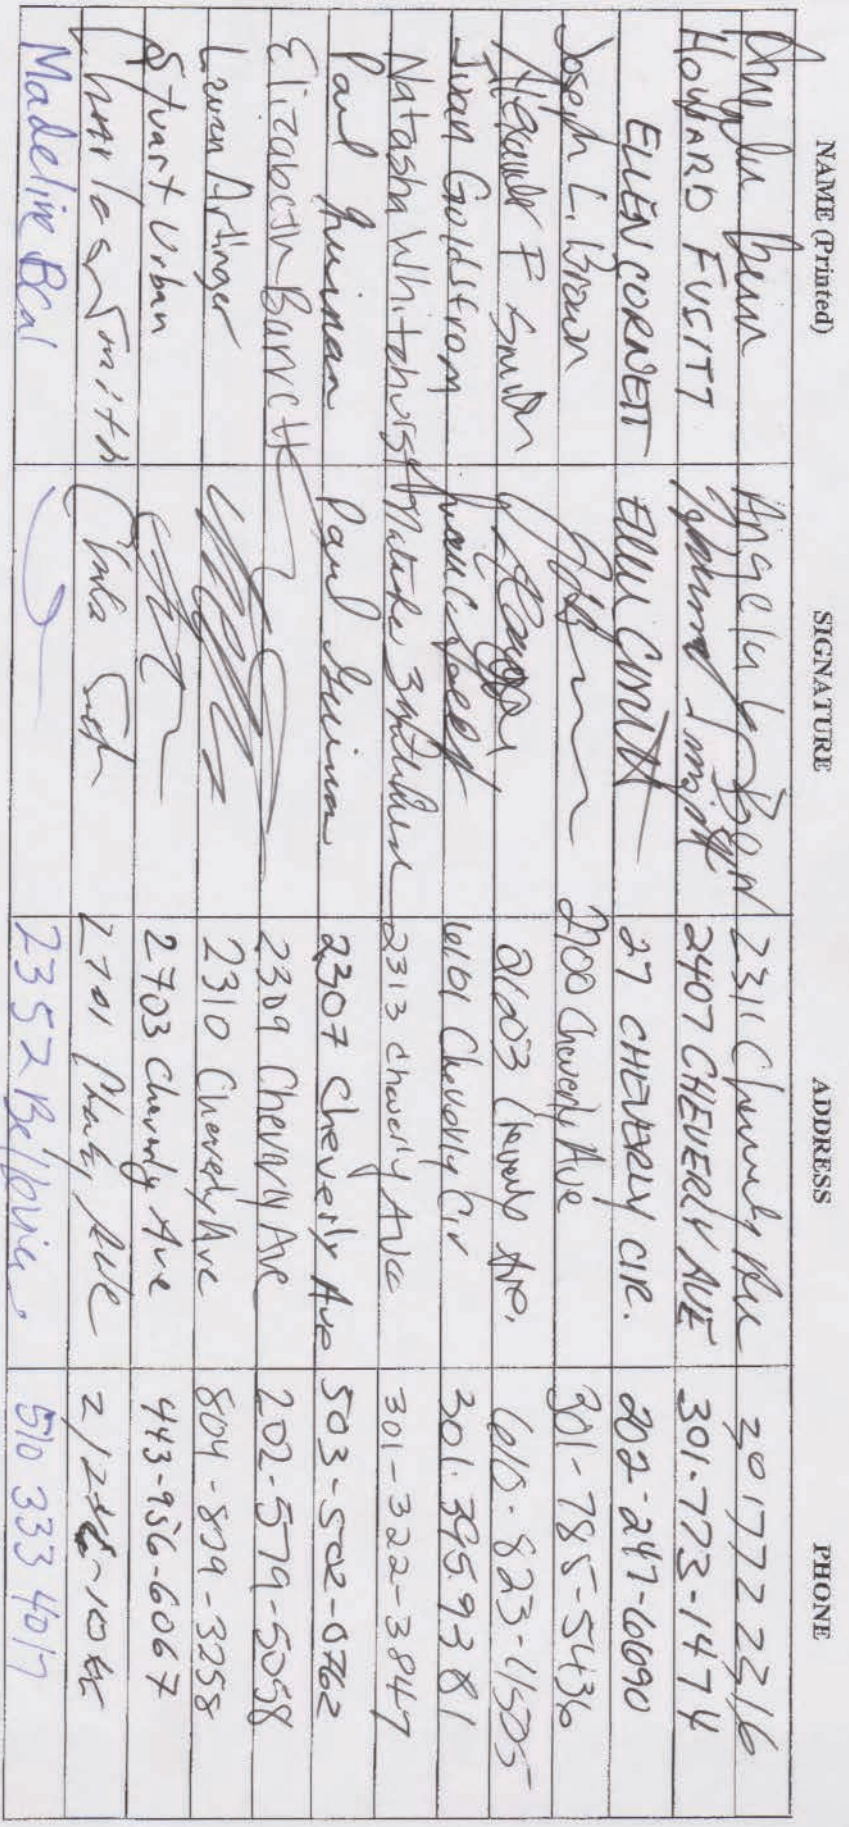 NAME (Printed) SIGNATURE ADDRESS PHONE
Angela Bean Angela L. Bean 2311 Cheverly Ave 301 772 2316
HOWARD FUSITT 2407 CHEVERLY AVE 301-773-1474
ELLEN CORNETT Ellen Cornett 27 CHEVERLY CIR. 202-247-6690
Joseph L. Brown 2100 Cheverly Ave 301-785-5436
Alexander F Smith Cheverly Ave.
Ivan Goldstrom 6101 Cheverly Cir 301.395.9381
Natasha Whitehurst 2313 cheverly Ave 301-322-3847
Paul Guinan Paul Guinan 2307 Cheverly Ave 503-502-0762
Elizabeth Barrett 2309 Cheverly Ave 202-579-5058
Lauren Artinger 2310 Cheverly Ave 804-809-3258
Stuart Urban 2703 Cheverly Ave 443-956-6067
Charles Smith 2701 Ave
Madeline Beal 2352 Belleview 510 333 4017